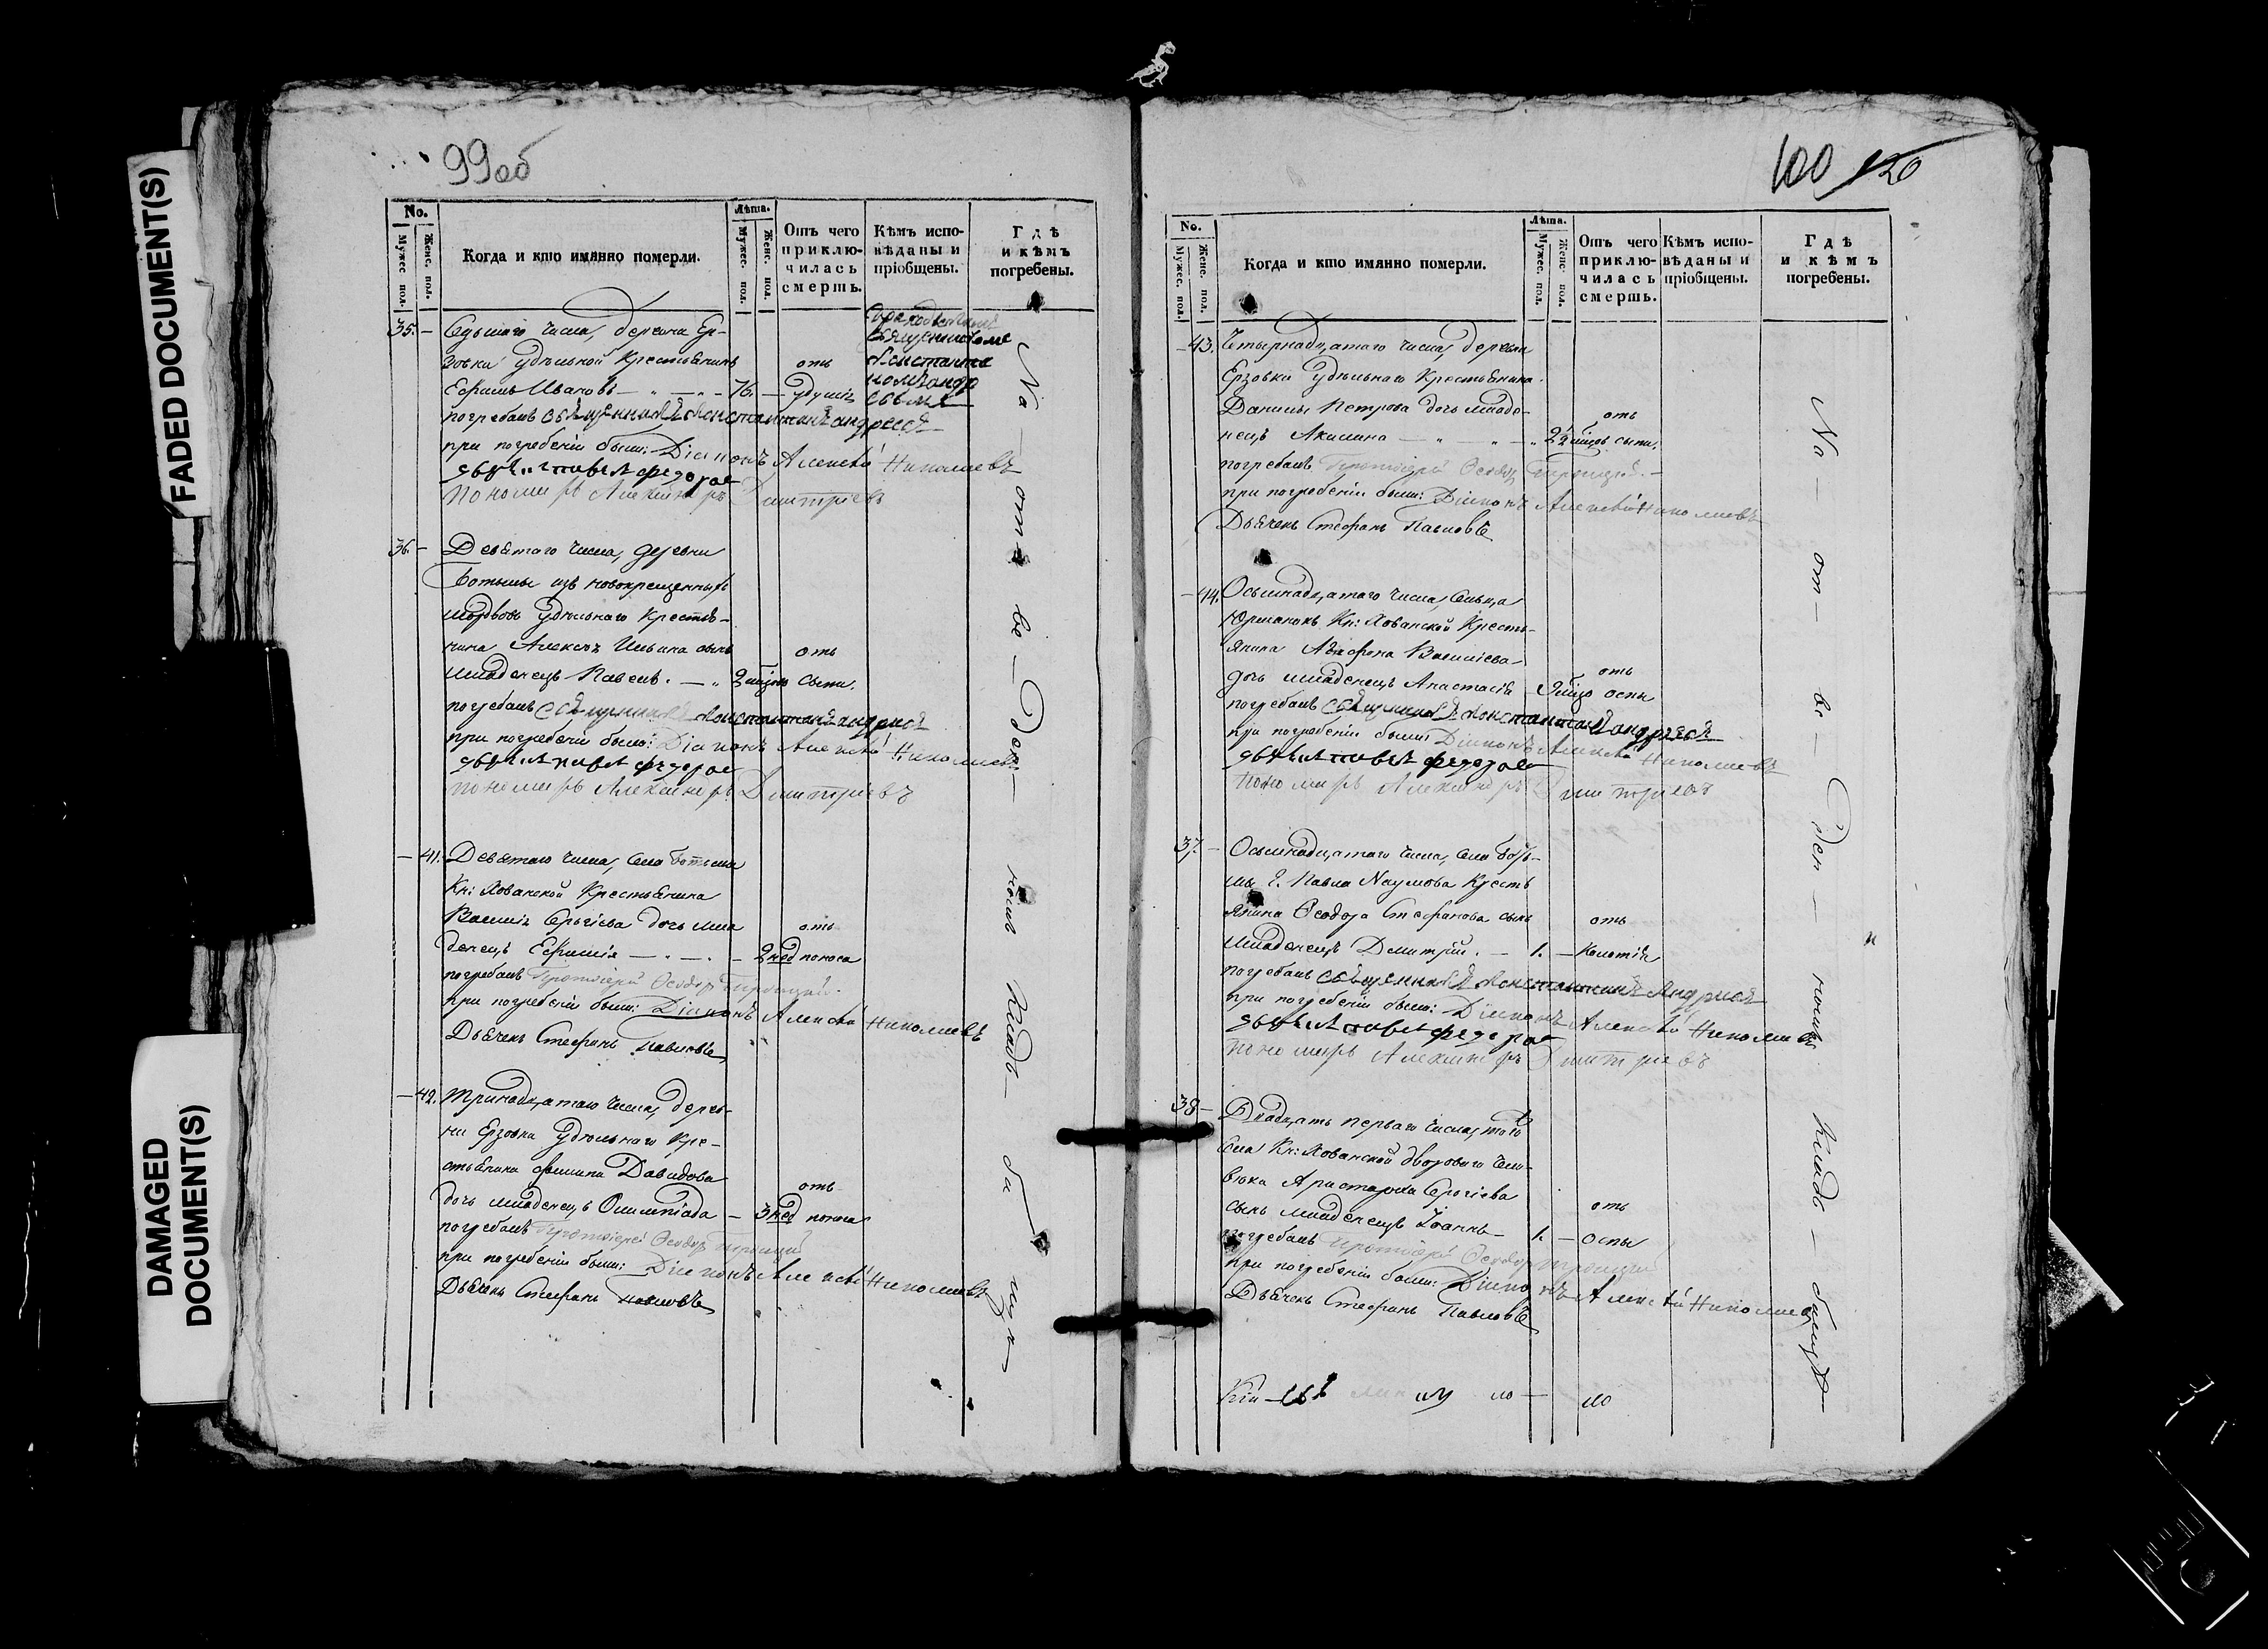 FADED DOCUMENT(S)
DAMAGED
DOCUMENT(S)
99об
No.
Мужес. пол.
Женс. пол.
Когда и кто имянно померли.
Лѣта.
Мужес. пол.
Женс. пол.
Отъ чего
приклю-
чилась
смерть.
Кѣмъ испо-
вѣданы и
пріобщены.
Гдѣ
и кѣмъ
погребены.
35. – Седьмаго числа, деревни Ер-
зовки удѣльной Крестьянинъ отъ
Ефимъ Ивановъ 76. – удушія
Священникомъ
погребалъ Священникъ Константинъ Андреевъ
при погребеніи были: Діаконъ Алексѣй Николаевъ
Пономарь Александръ Дмитріевъ
36. – Девятаго числа, деревни
Ботьмы изъ новокрещенныхъ
мордовъ удѣльнаго Крестья-
нина Алексѣя Ильина сынъ отъ
младенецъ Павелъ. – 2 сыпи.
погребалъ Священникъ Константинъ Андреевъ
при погребеніи были: Діаконъ Алексѣй Николаевъ
Пономарь Александръ Дмитріевъ
– 41. Девятаго числа, села Ботьма
Кн: Хованской Крестьянина
Василія Сергіева дочь мла отъ
денецъ Ефимія – 2 нед поноса
погребалъ Протоіерей Ѳеодоръ Троицкій.
при погребеніи были: Діаконъ Алексѣй Николаевъ
Дьячекъ Стефанъ Павловъ
– 42. Тринадцатаго числа, дерев-
ни Ерзовка удѣльнаго Кре-
стьянина Филипа Давидова отъ
дочь младенецъ Олимпіада – 3 нед поноса
погребалъ Протоіерей Ѳеодоръ Троицкій
при погребеніи были: Діаконъ Алексѣй Николаевъ
Дьячекъ Стефанъ Павловъ
На – от – ве – ден – номъ клад – би – щѣ
100 120
No.
Мужес. пол.
Женс. пол.
Когда и кто имянно померли.
Лѣта.
Мужес. пол.
Женс. пол.
Отъ чего
приклю-
чилась
смерть.
Кѣмъ испо-
вѣданы и
пріобщены.
Гдѣ
и кѣмъ
погребены.
– 43. Четырнадцатаго числа, деревни
Ерзовки удѣльнаго Крестьянина
Данилы Петрова дочь младе- отъ
нецъ Акилина – сыпи.
погребалъ Протоіерей Ѳеодоръ Троицкій. –
при погребеніи были: Діаконъ Алексѣй Николаевъ
Дьячекъ Стефанъ Павловъ
– 44. Осьмнадцатаго числа, Сельца
Кн: Хованской Кресть-
янина Василіева отъ
дочь младенецъ Анастасія оспы
погребалъ Священникъ Константинъ Андреевъ
при погребеніи были: Діаконъ Алексѣй Николаевъ
Пономарь Александръ Дмитріевъ
37. – Осьмнадцатаго числа, села Боть-
мы Г. Павла Наумова Кресть
янина Ѳеодора Стефанова сынъ отъ
младенецъ Димитрій. – 1. –
погребалъ Священникъ Константинъ Андреевъ
при погребеніи были: Діаконъ Алексѣй Николаевъ
Пономарь Александръ Дмитріевъ
38 – Двадцать перваго числа, того
села Кн: Хованской двороваго чело-
вѣка Аристарха Сергіева отъ
сынъ младенецъ Іоаннъ – 1. – оспы
погребалъ Протоіерей Ѳеодоръ Троицкій
при погребеніи были: Діаконъ Алексѣй Николаевъ
Дьячекъ Стефанъ Павловъ
На – от – ве – ден – номъ клад – бищѣ